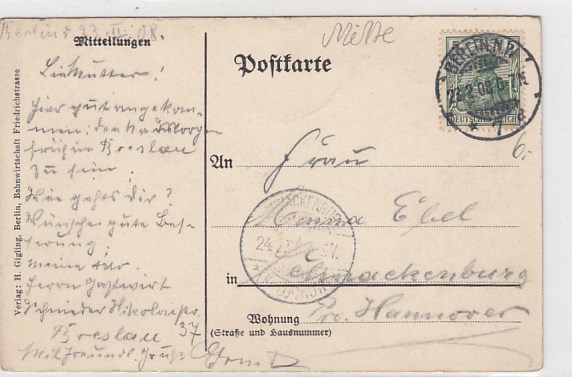 Berlin 23. II. 08.
Mitte
Mitteilungen
Postkarte
Lieb Mutter!
Hier gut angekom-
men, denke Morgen
früh in Breslau
zu sein.
Wie gehts dir?
Wünsche gute Bes-
serung!
meine Adr.
Herrn Gastwirt
Schnieder Nikolaistr.
37
Breslau
Mit freundl. Gruß
Verlag: H. Gigling, Berlin, Bahnwirtschaft Friedrichstrasse
BERLIN N.W.
23.2.08.6-7N.
* 7
DEUTSCHES REICH
An
Frau
Emma Ebel
in
Schnackenburg
Pr. Hannover
Wohnung
(Straße und Hausnummer)
SCHNACKENBURG
24.
6.-